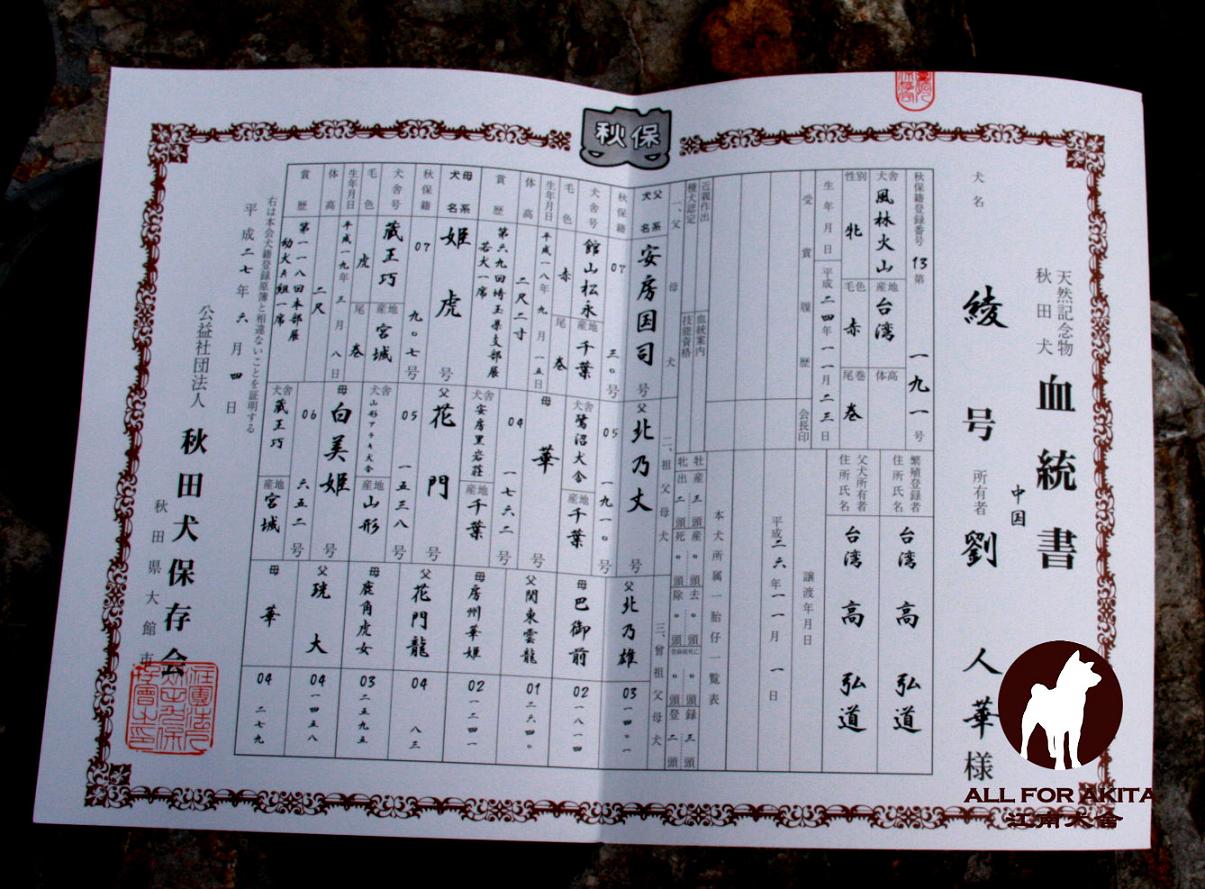 秋保
天然記念物
秋田犬
血統書
犬名
綾号
中国
所有者
劉人華様
秋保籍登録番号 13 第一九一号
犬舎 風林火山 産地 台湾 体高
性別 牝 毛色 赤 尾巻 巻
生年月日 平成二四年一一月二三日
受賞履歴 会長印
繁殖登録者
住所氏名
台湾 高弘道
父犬所有者
住所氏名
台湾 高弘道
譲渡年月日
平成二六年一一月一日
本犬所属一胎仔一覧表
近親作出
種犬認定
血統案内
技能資格
一、父母犬
二、祖父母犬
三、曾祖父母犬
父系
犬名
安房国司号
秋保籍 07 三〇号
犬舎号 館山松永 産地 千葉
毛色 赤 尾 巻
生年月日 平成一八年九月一五日
体高 二尺二寸
賞歴 第六九回埼玉県支部展
若犬一席
母系
犬名
姫虎号
秋保籍 07 九〇七号
犬舎号 蔵王巧 産地 宮城
毛色 虎 尾 巻
生年月日 平成一九年三月八日
体高 二尺
賞歴 第一一八回本部展
幼犬A組一席
父 北乃丈号
05 一九一〇号
犬舎 鷺沼犬舎 産地 千葉
母 華号
04 一七六二号
犬舎 安房里岩荘 産地 千葉
父 花門号
05 一五三八号
犬舎 山形アキタ犬舎 産地 山形
母 白美姫号
06 六五二号
犬舎 蔵王巧 産地 宮城
父 北乃雄 03 一四〇一
母 巴御前 02 一八一四
父 関東雲龍 01 二六四〇
母 房州華姫 02 一二四一
父 花門龍 04 八三
母 鹿角虎女 03 二五九五
父 珖大 04 一四五八
母 華 04 二七九
右は本会犬籍登録原簿と相違ないことを証明する
平成二七年六月四日
公益社団法人
秋田犬保存会
秋田県大館市
ALL FOR AKITA
江南犬舍